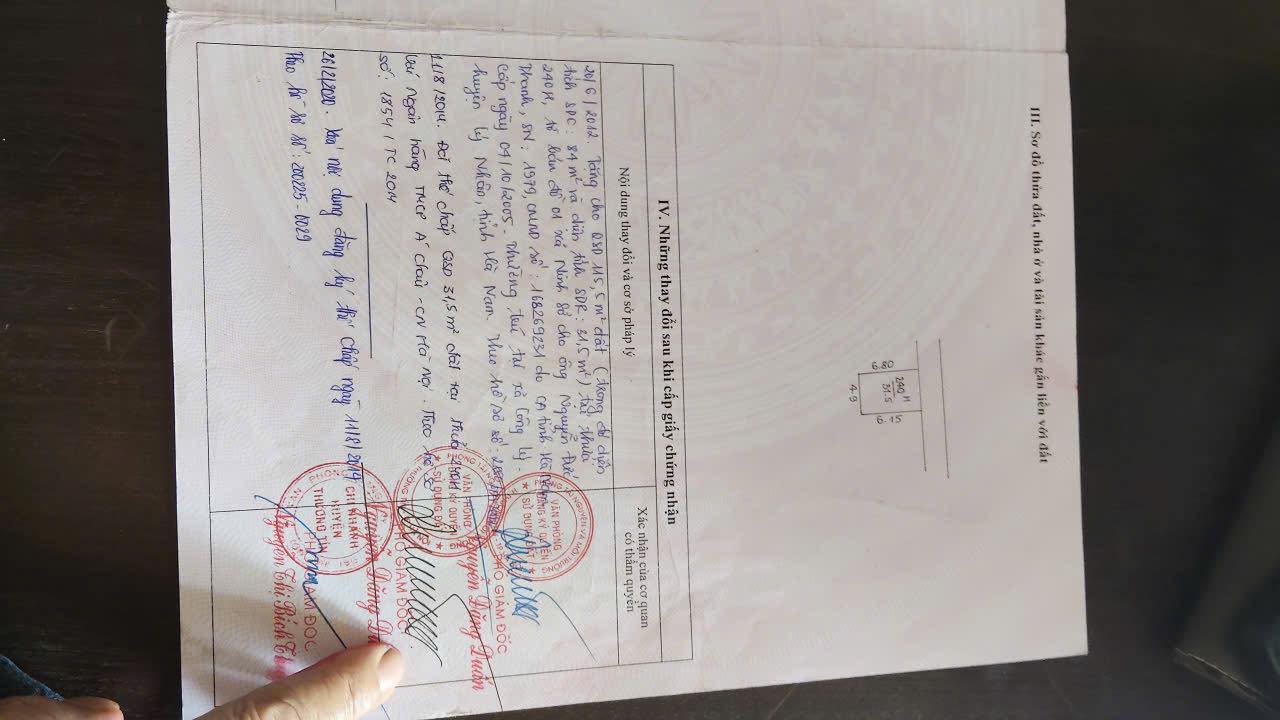 III. Sơ đồ thửa đất, nhà ở và tài sản khác gắn liền với đất
6.80
240 H
31.5
6.15
4.9
IV. Những thay đổi sau khi cấp giấy chứng nhận
Nội dung thay đổi và cơ sở pháp lý
Xác nhận của cơ quan
có thẩm quyền
20/6/2012. Tặng cho QSD 115,5m² đất (trong đó diện
tích SDC: 84 m² và diện tích SDR: 31,5 m²) tại thửa
240H, tờ bản đồ 01 xã Ninh Sở cho ông Nguyễn Đức
Thanh, SN: 1979, CMND số: 168269231 do CA tỉnh Hà Nam
cấp ngày 04/10/2005. Thường trú tại xã Công Lý,
huyện Lý Nhân, tỉnh Hà Nam. Theo hồ sơ số:
11/8/2014. Đã thế chấp QSD 31,5m² đất tại thửa 240H
với ngân hàng TMCP Á Châu - CN Hà Nội. Theo hồ sơ
số: 1854/TC 2014
26/2/2020. Xoá nội dung đăng ký thế chấp ngày 11/8/2014
theo hồ sơ số: 200225-0029
PHÒNG TÀI NGUYÊN VÀ MÔI TRƯỜNG
VĂN PHÒNG
ĐĂNG KÝ QUYỀN
SỬ DỤNG ĐẤT
GIÁM ĐỐC
Nguyễn Đăng Duẩn
VĂN PHÒNG
ĐĂNG KÝ QUYỀN
SỬ DỤNG ĐẤT
GIÁM ĐỐC
Nguyễn Đăng
CHI NHÁNH
HUYỆN
THƯỜNG TÍN
GIÁM ĐỐC
Nguyễn Thị Bích